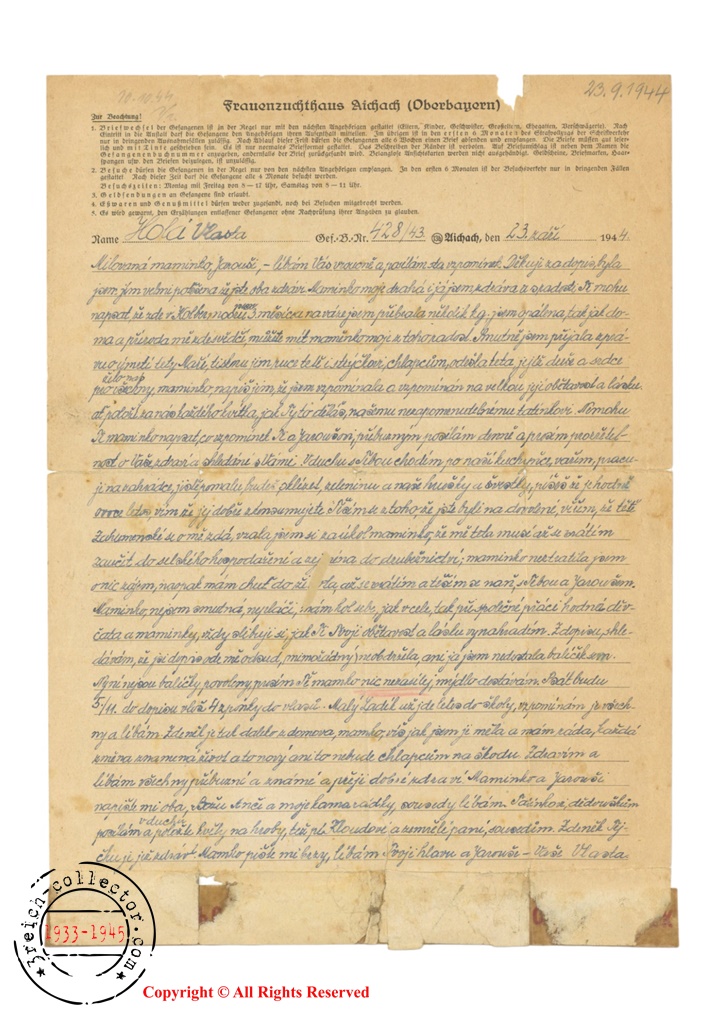 10.10.44
23.9.1944
Frauenzuchthaus Aichach (Oberbayern)
Zur Beachtung!
1. Briefwechsel der Gefangenen ist in der Regel nur mit den nächsten Angehörigen gestattet (Eltern, Kinder, Geschwister, Großeltern, Ehegatten, Verschwägerte). Nach
Eintritt in die Anstalt darf die Gefangene den Angehörigen ihren Aufenthalt mitteilen. Im übrigen ist in den ersten 6 Monaten des Strafvollzugs der Schriftverkehr
nur in dringenden Ausnahmefällen zulässig. Nach Ablauf dieser Frist dürfen die Gefangenen alle 6 Wochen einen Brief absenden und empfangen. Die Briefe müssen gut leser-
lich und mit Tinte geschrieben sein. Es ist nur normales Briefformat gestattet. Das Beschreiben der Ränder ist verboten. Auf Briefumschlag ist neben dem Namen die
Gefangenenbuchnummer anzugeben, andernfalls der Brief zurückgesandt wird. Belanglose Ansichtskarten werden nicht ausgehändigt. Geldscheine, Briefmarken, Haar-
spangen usw. den Briefen beizulegen, ist unzulässig.
2. Besuche dürfen die Gefangenen in der Regel nur von den nächsten Angehörigen empfangen. In den ersten 6 Monaten ist der Besuchsverkehr nur in dringenden Fällen
gestattet. Nach dieser Zeit darf die Gefangene alle 4 Monate besucht werden.
Besuchszeiten: Montag mit Freitag von 8 – 17 Uhr, Samstag von 8 – 11 Uhr.
3. Geldsendungen an Gefangene sind erlaubt.
4. Eßwaren und Genußmittel dürfen weder zugesandt, noch bei Besuchen mitgebracht werden.
5. Es wird gewarnt, den Erzählungen entlassener Gefangener ohne Nachprüfung ihrer Angaben zu glauben.
Name Holá Vlasta Gef.-B.-Nr. 428/43. Aichach, den 23. září 1944.
Milovaná maminko, Jarouši, – líbám Vás vroucně a posílám sta vzpomínek. Děkuji za dopis, byla
jsem jím velmi potěšena že jste oba zdrávi. Maminko moje drahá i já jsem zdráva
napsat, že zde v 3 měsíce na váze jsem přibrala několik kg. jsem opálena, tak jak do-
ma a příroda mě zde svědčí, můžete mít maminko moje z toho radost. Smutně jsem přijala zprá-
vu o úmrtí tety Maři, tisknu jim ruce též i strýčkovi, chlapcům,
maminko napiš jim, že jsem vzpomínala a vzpomínám na velkou její obětavost a lásku
ať položí za nás každého kvítka, jak Ty to děláš, našemu nezapomenutelnému tatínkovi. Nemohu
Ti maminko napsat, co vzpomínek Ti a Jarouškovi, příbuzným posílám denně a prosím prozřetel-
nost o Vaše zdraví a shledání s Vámi. V duchu s Tebou chodím po naší kuchyňce, vařím, pracu-
ji na zahrádce, již pomalu budeš sklízet, zeleninu a naše hrušky a švestky, píšeš že je hodně
ovoce letos, vím že jej dobře zkonsumujete. Těším se z toho že jste byli na dovolené, věřím, že tetě
se o mě zdá, vzala jsem si za úkol maminko, že mě teta musí až se vrátím
zaučit do selského hospodaření a zejména do drůbežnictví, maminko neztratila jsem
o nic zájem, naopak mám chuť do života, až se vrátím a těším se naň, s Tebou a Jarouškem.
Maminko, nejsem smutná, neplači, mám kol sebe, jak v cele, tak při společné práci hodná děv-
čata a maminky, vždy slibuji si, jak Ti Tvoji obětavost a lásku vynahradím. Z dopisu, shle-
dávám, že jsi dopis ode mě odsud, mimořádný neobdržela, ani já jsem nedostala balíček
Nyní nejsou balíčky povoleny, prosím Tě mamko nic nezasílej, mýdlo dostávám. Psát budu
5/11. do dopisu vlož 4 zpinky do vlasů. Malý Ladík už jde letos do školy, vzpomínám je všech-
ny a líbám. Zdeněk je tak daleko z domova, mamko, víš jak jsem ji měla a mám ráda, každá
změna znamená život a to nový ani to nebude chlapcům na škodu. Zdravím a
líbám všechny příbuzné a známé a přeji dobré zdraví. Maminko a Jarouši
napište mi oba, Anče a moje kamarádky, sousedy líbám. Tatínkovi, dědouškům
v duchu
posílám a položte kvítky na hroby, též pí. Kloudové a zemřelé paní, sousedům. Zdeněk
je již zdráv? Mamko pište mi brzy, líbám Tvoji hlavu a Jarouši – Vaše Vlasta.
3reich-collector.com
1933-1945
Copyright © All Rights Reserved